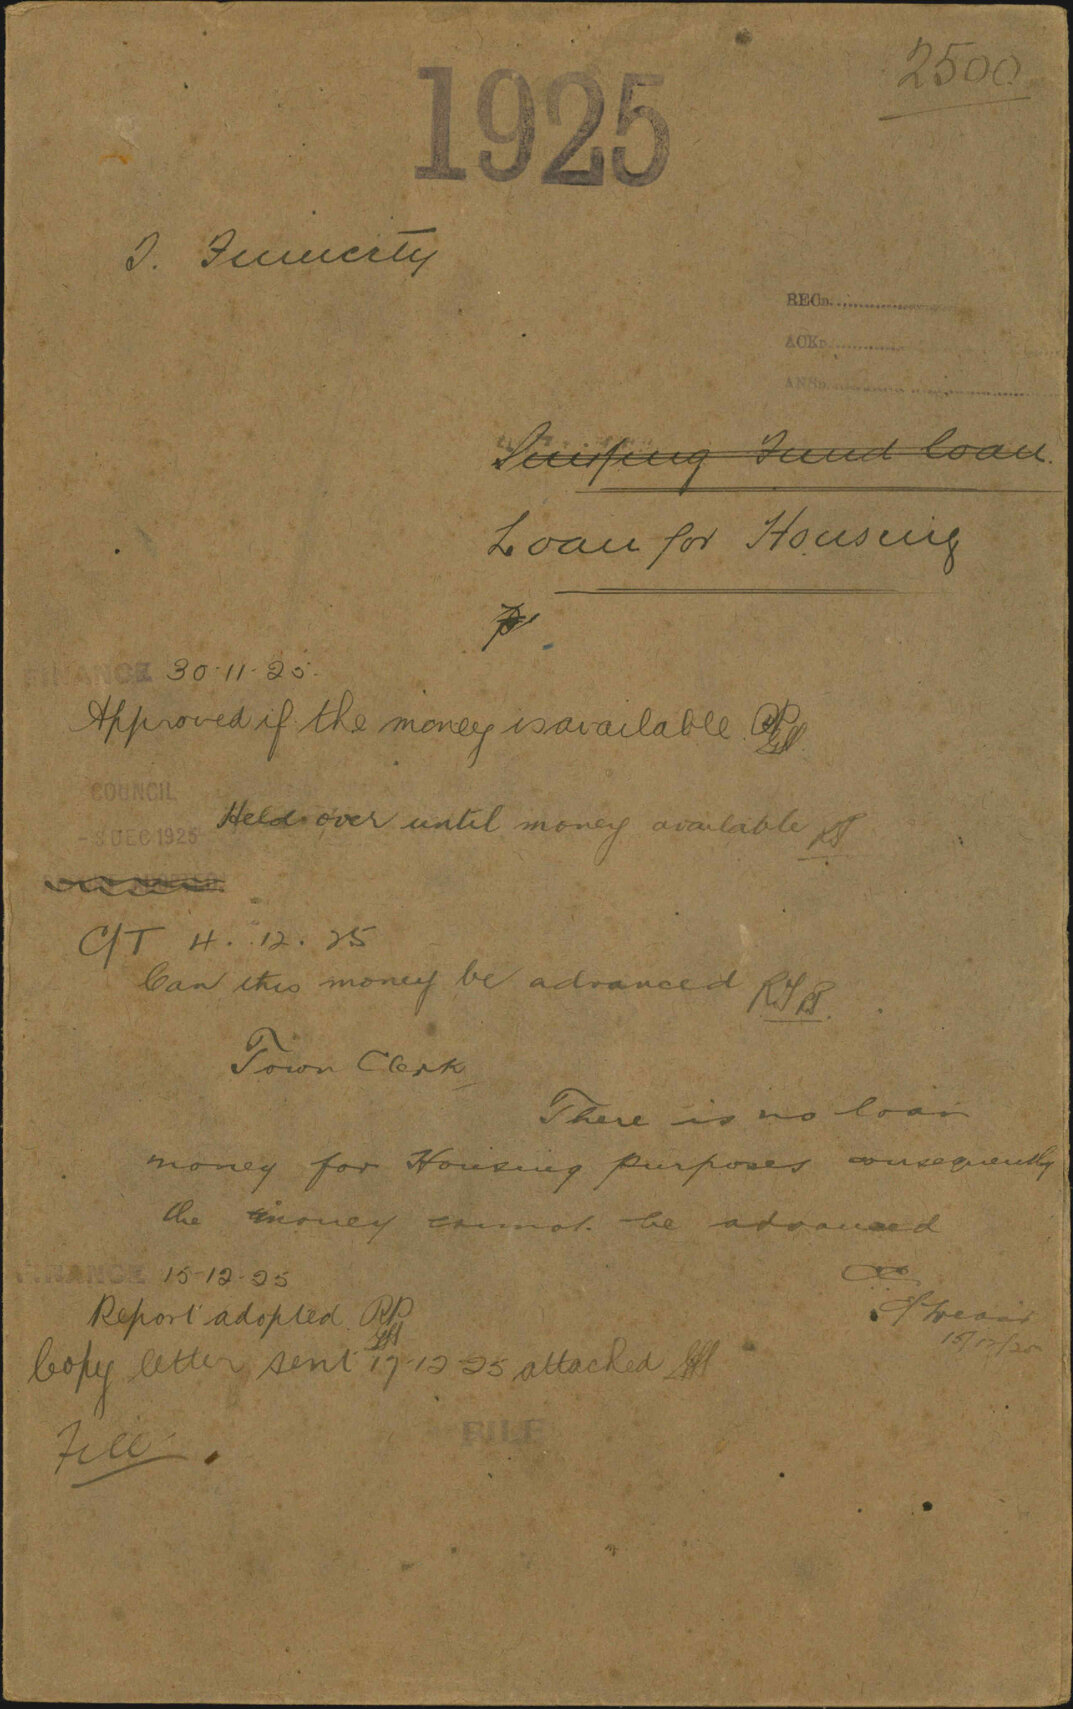 2500
1925
RECD.
ACKD.
ANSD.
Sinking Fund Loan.
Loan for Housing
FINANCE 30-11-25.
Approved if the money is available RP
COUNCIL
Held over until money available
DEC 1925
C/T 4. 12. 25
Can this money be advanced
Town Clerk
There is no loan
money for Housing purposes consequently
the money cannot be advanced
FINANCE 15-12-25
Report adopted RP
15/12/25
Copy letter sent 17-12-25 attached
FILE
File